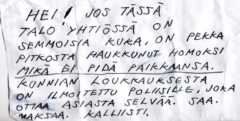 HEI! JOS TÄSSÄ
TALO YHTIÖSSÄ ON
SEMMOISIA KUKA, ON PEKKA
PITKOSTA HAUKKUNUT HOMOKSI
MIKÄ EI PIDÄ PAIKKAANSA.
KUNNIAN LOUKKAUKSESTA
ON ILMOITETTU POLIISILLE, JOKA
OTTAA ASIASTA SELVÄÄ. SAA.
MAKSAA. KALLIISTI.